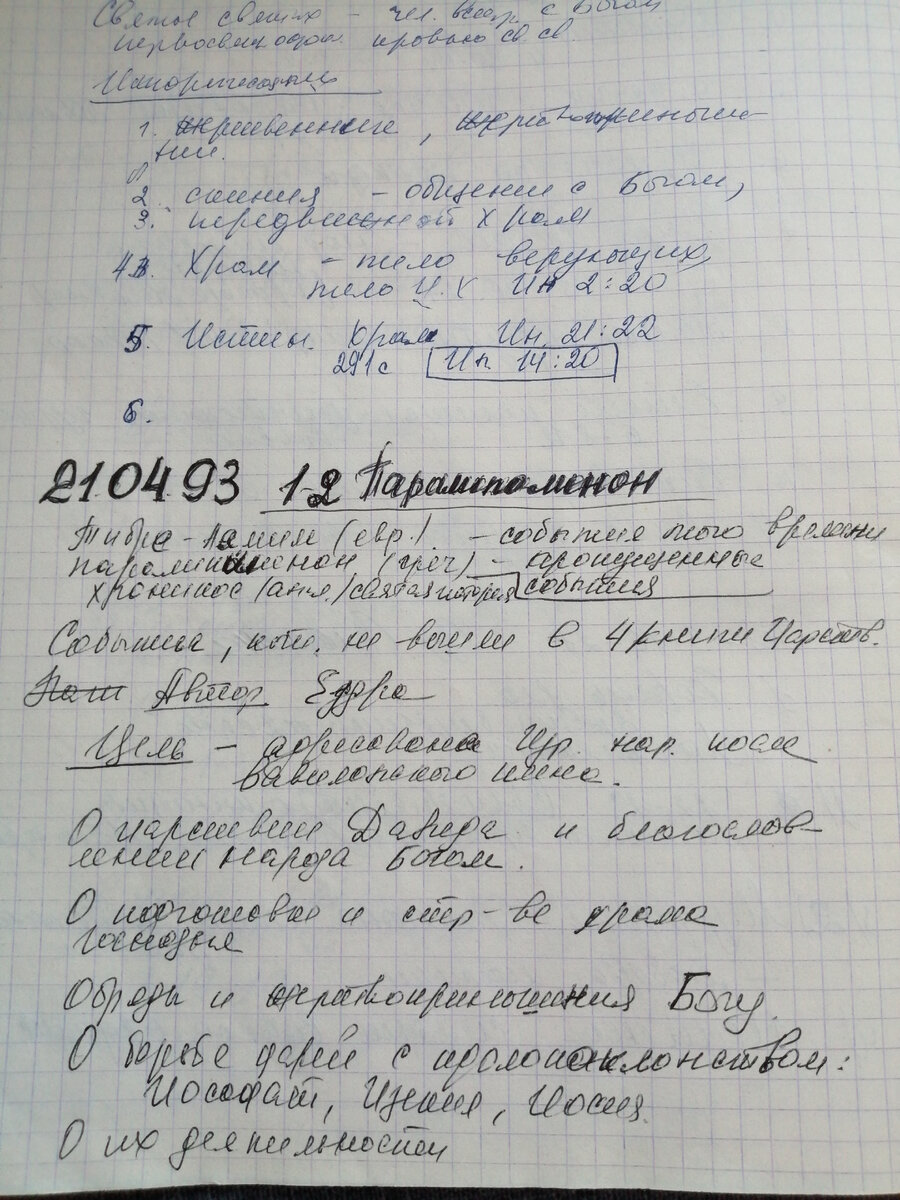 Святое святых - чел. встр. с Богом
первосвящ. кровью св. св.
1. жертвенник, жертвоприношение
2. скиния - общение с Богом,
3. передвижной Храм
4. Храм - тело верующих,
тело И. Х Ин 2:20
5. Истин. Храм Ин. 21:22
291 с Ин. 14:20
6.
210493 1-2 Паралипоменон
Дибре - Ламим (евр.) - события того времени
паралипоменон (греч) - пропущенные
хроникос (англ.) святая история события
События, кот. не вошли в 4 книги Царств.
Автор Ездра
Цель - адресована Изр. нар. после
Вавилонского плена.
О царствии Давида и благослов-
лении народа Богом.
О подготовке и стр-ве храма
Господня
Обряды и жертвоприношения Богу.
О борьбе царей с идолопоклонством:
Иософат, Изекия, Иосия.
О их деятельности